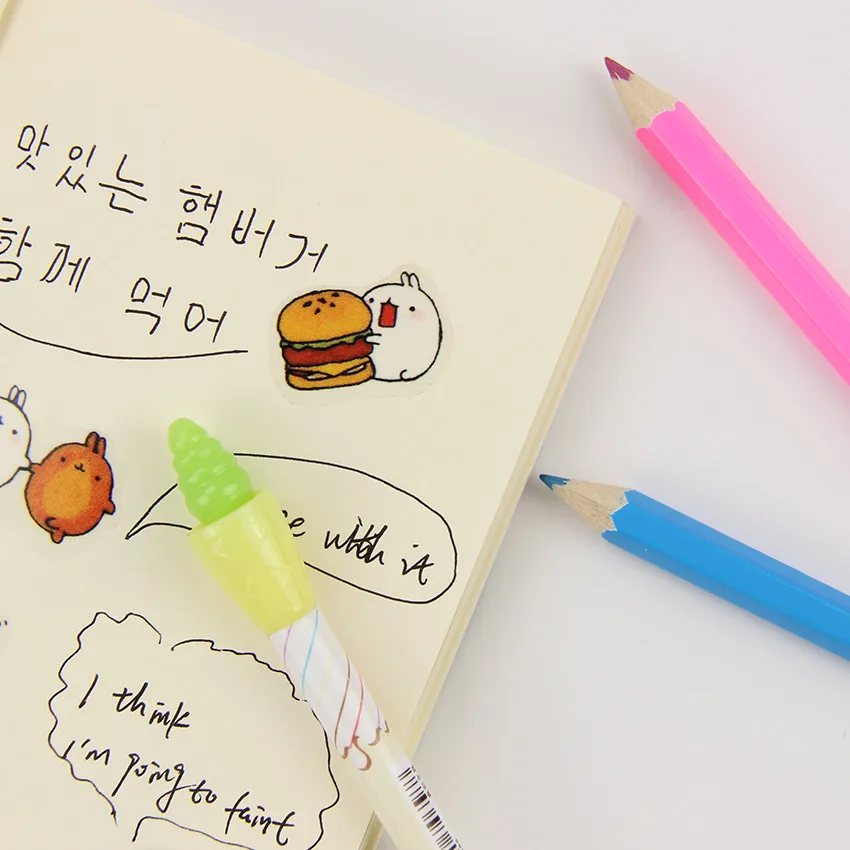 맛있는 햄버거
함께 먹어
with it
I think
I'm going to faint